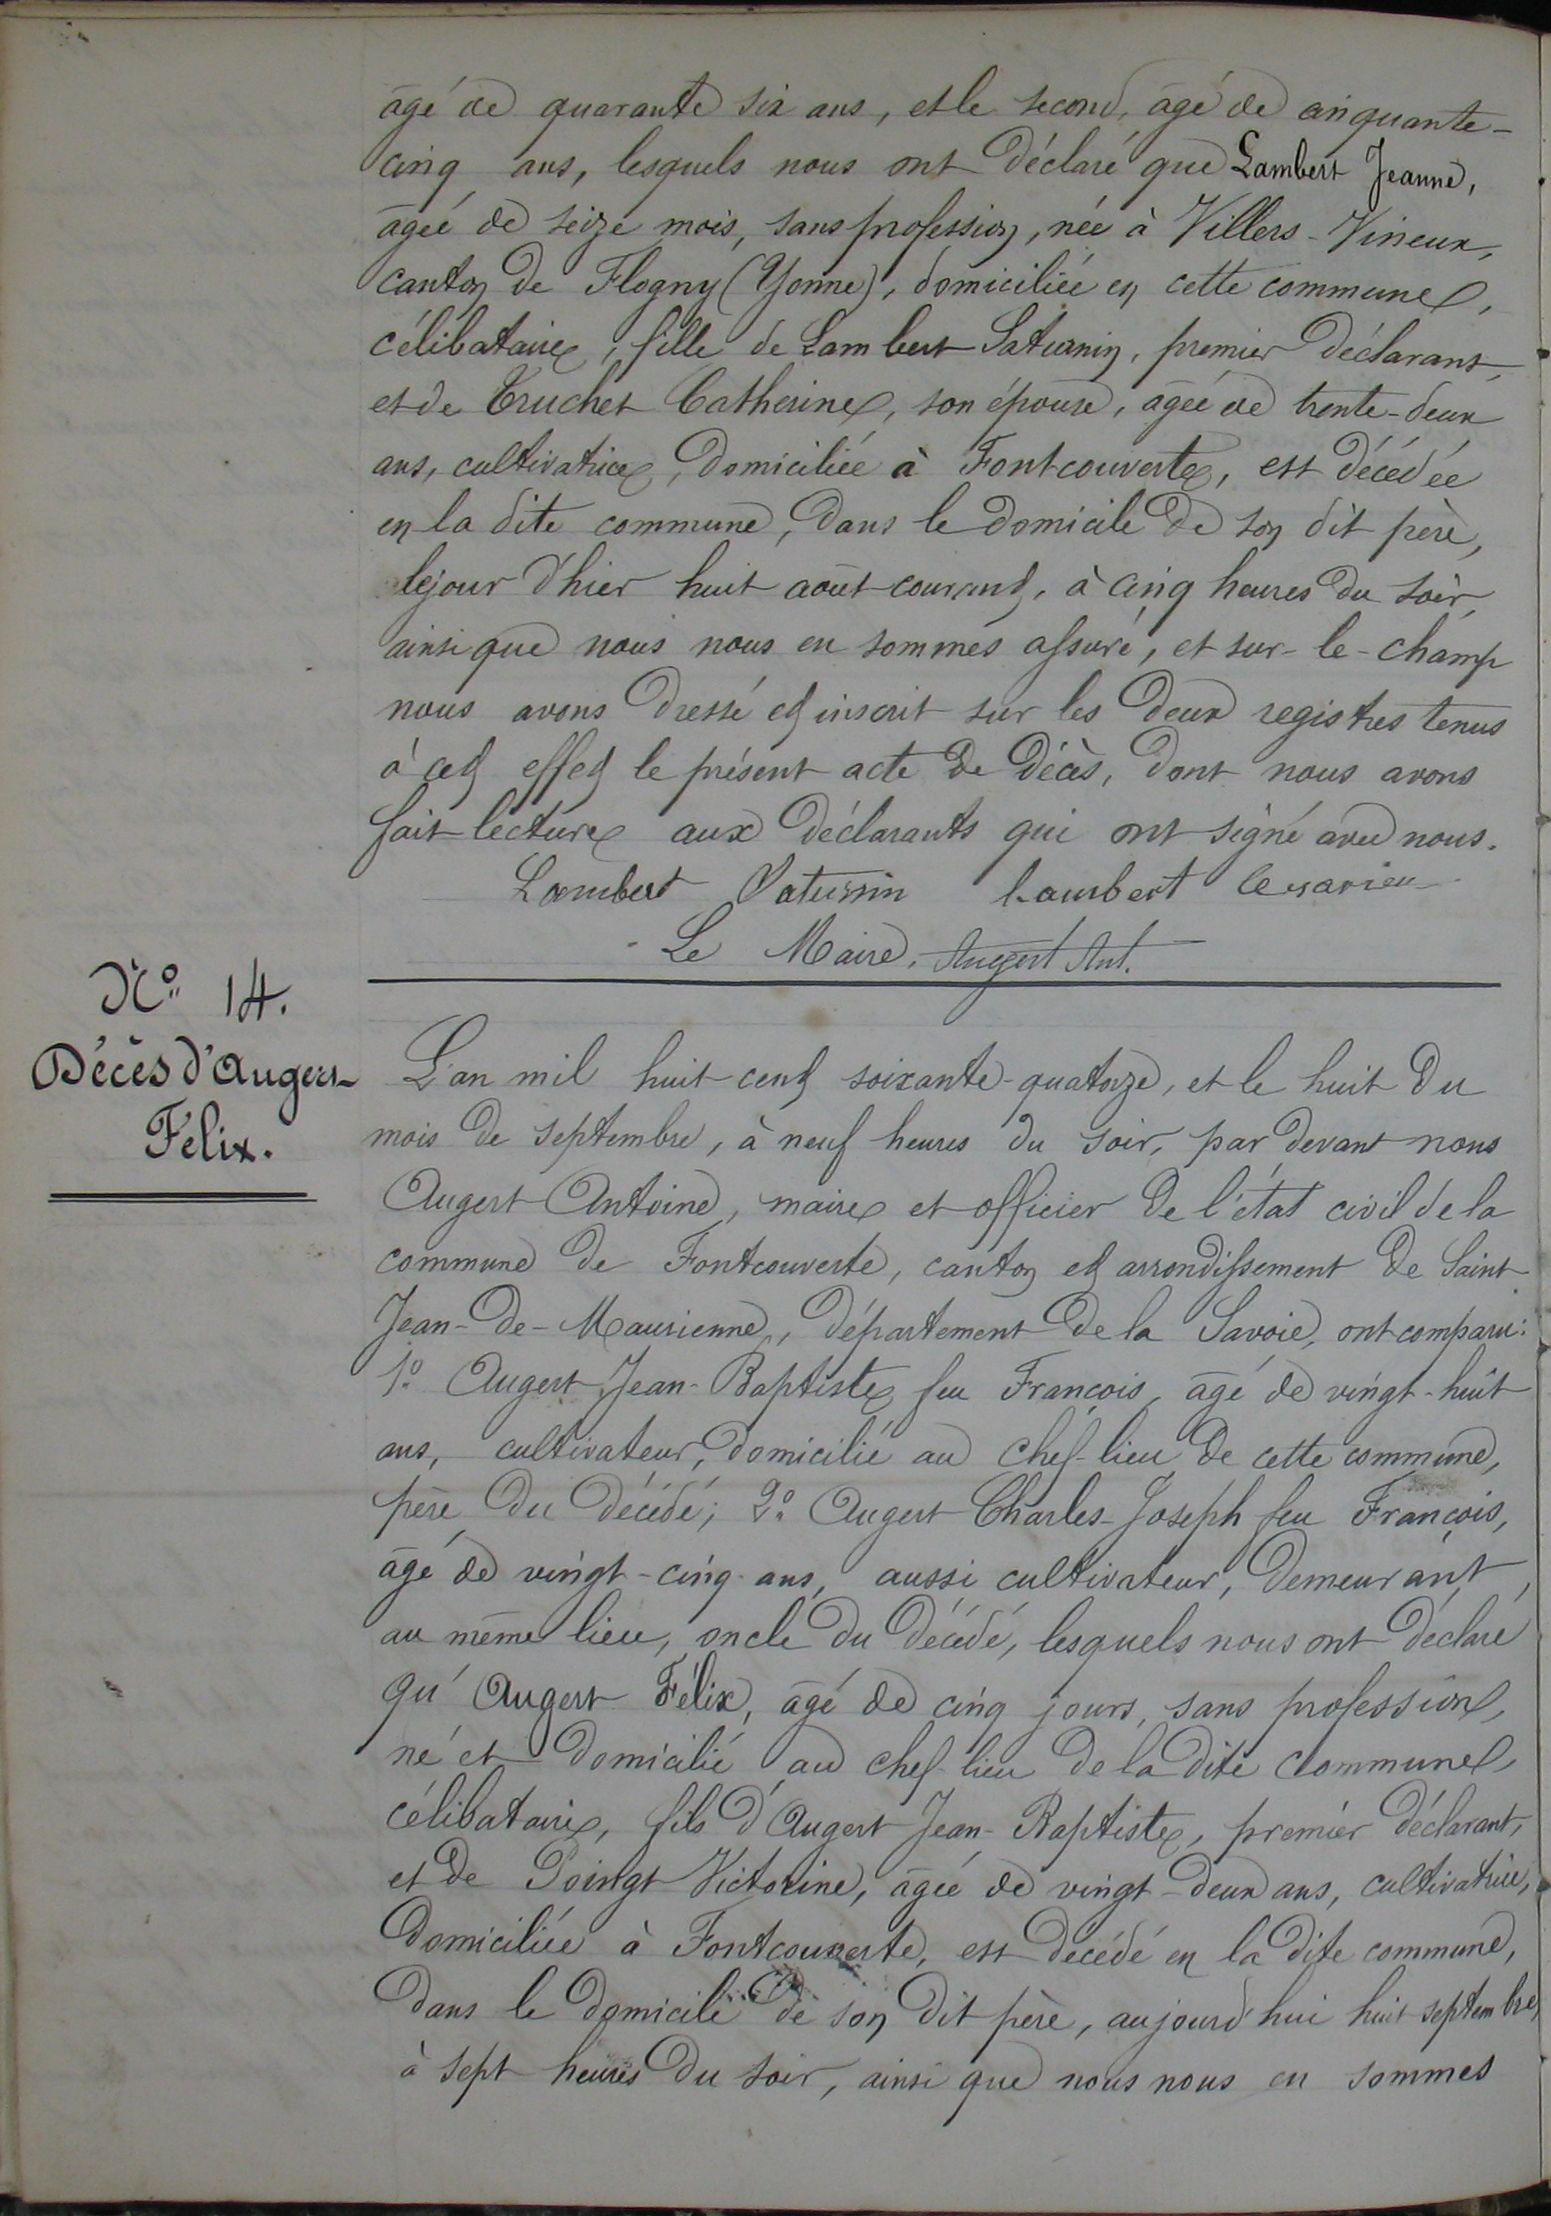 âgé de quarante six ans, et le second, âgé de cinquante-
cinq ans, lesquels nous ont déclaré que Lambert Jeanne,
âgée de seize mois, sans profession, née à Villers-Vineux,
canton de Flogny (Yonne), domiciliée en cette commune,
célibataire, fille de Lambert Saturnin, premier déclarant,
et de Truchet Catherine, son épouse, âgée de trente-deux
ans, cultivatrice, domiciliée à Fontcouverte, est décédée
en la dite commune, dans le domicile de son dit père,
le jour d'hier huit août courant, à cinq heures du soir,
ainsi que nous nous en sommes assuré, et sur-le-champ
nous avons dressé et inscrit sur les deux registres tenus
à cet effet le présent acte de décès, dont nous avons
fait lecture aux déclarants qui ont signé avec nous.
Lambert Saturnin Lambert
Le Maire, Augert Ant.
N° 14.
Décès d'Augert
Félix.
L'an mil huit cent soixante-quatorze, et le huit du
mois de septembre, à neuf heures du soir, par devant nous
Augert Antoine, maire et officier de l'état civil de la
commune de Fontcouverte, canton et arrondissement de Saint-
Jean-de-Maurienne, département de la Savoie, ont comparu:
1° Augert Jean-Baptiste feu François, âgé de vingt-huit
ans, cultivateur, domicilié au chef-lieu de cette commune,
père du décédé; 2° Augert Charles-Joseph feu François,
âgé de vingt-cinq ans, aussi cultivateur, demeurant,
au même lieu, oncle du décédé, lesquels nous ont déclaré
qu'Augert Félix, âgé de cinq jours, sans profession,
né et domicilié au chef-lieu de la dite commune,
célibataire, fils d'Augert Jean-Baptiste, premier déclarant,
et de Poingt Victorine, âgée de vingt-deux ans, cultivatrice,
domiciliée à Fontcouverte, est décédé en la dite commune,
dans le domicile de son dit père, aujourd'hui huit septembre,
à sept heures du soir, ainsi que nous nous en sommes